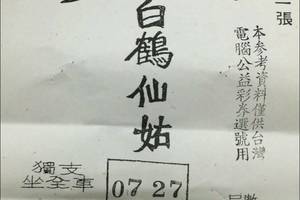 一張
本參考資料僅供台灣
電腦公益彩券選號用
白鶴仙姑
獨支
坐全車
07 27